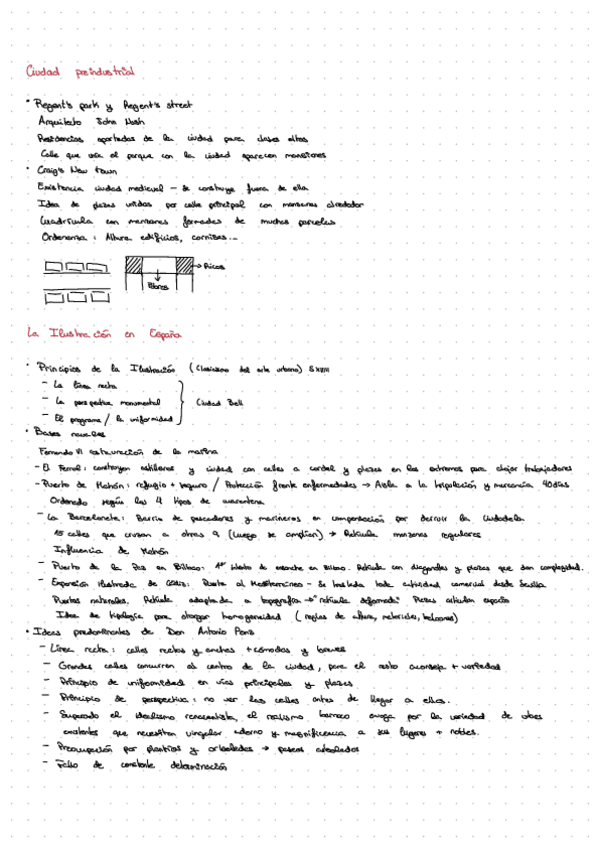 Ciudad preindustrial
• Regent's park y Regent's street
Arquitecto John Nash
Residencias apartadas de la ciudad para clases altas
Calle que unía el parque con la ciudad aparecen mansiones
• Craig's New town
Existencia ciudad medieval – se construye fuera de ella
Idea de plazas unidas por calle principal con manzanas alrededor
Cuadrícula con manzanas formadas de muchas parcelas
Ordenanza: Altura edificios, cornisas...
→ Ricos
Blanco
La Ilustración en España
• Principios de la Ilustración (Clasicismo del arte urbano) S XVIII
– La línea recta
– La perspectiva monumental
Ciudad Bell
– El programa / la uniformidad
• Bases navales
Fernando VI estructuración de la marina
– El Ferrol: construyen astilleros y ciudad con calles a cordel y plazas en los extremos para alojar trabajadores
– Puerto de Mahón: refugio + seguro / Protección frente enfermedades → Aísla a la tripulación y mercancía 40 días
Ordenado según los 4 tipos de cuarentena
– La Barceloneta: Barrio de pescadores y marineros en compensación por derruir la Ciudadela
15 calles que cruzan a otras 9 (luego se amplían) → Retícula manzanas regulares
Influencia de Mahón
– Puerto de la Paz en Bilbao: 1er intento de ensanche en Bilbao. Retícula con diagonales y plazas que dan complejidad.
– Expansión ilustrada de Cádiz: Puerta al Mediterráneo – Se traslada toda actividad comercial desde Sevilla
Puertos naturales. Retícula adaptada a topografía → "retícula deformada" Plazas articulan espacio
Idea de tipología para otorgar homogeneidad (reglas de altura, materiales, balcones)
• Ideas predominantes de Don Antonio Ponz
– Línea recta: calles rectas y anchas + cómodas y breves
– Grandes calles concurren al centro de la ciudad, para el resto aconseja + variedad
– Principio de uniformidad en vías principales y plazas
– Principio de perspectiva: no ver las calles antes de llegar a ellas.
– Superado el idealismo renacentista, el realismo barroco aboga por la variedad de urbes
existentes que necesitan singular adorno y magnificencia a sus lugares + nobles.
– Preocupación por plantíos y arboledas → paseos arbolados
– Falta de constante determinación